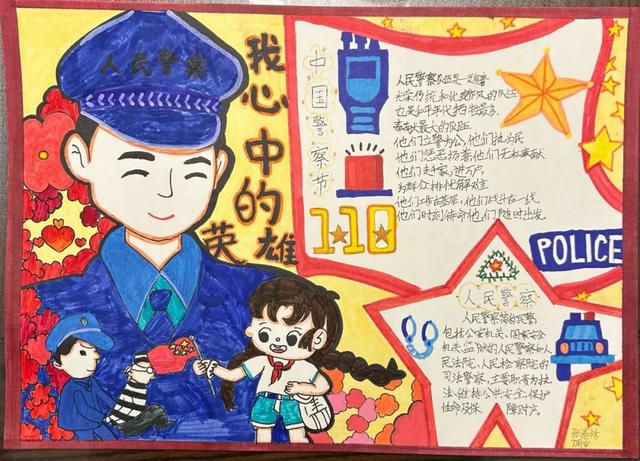 人民警察
我心中的
英雄
中国警察节
110
人民警察队伍是一支有着
光荣传统和优良作风的队伍
也是和平年代牺牲最多
奉献最大的队伍
他们立警为公，他们执为民
他们惩恶扬善他们无私奉献
他们走千家，进万户
为群众排忧解难
他们工作在基层，他们战斗在一线
他们时刻待命他们随时出发
POLICE
人民警察
人民警察简称民警
包括公安机关、国家安全
机关监狱的人民警察和人
民法院、人民检察院的
司法警察，主要职责为执
法、维持公共安全、保护
性命及保障财产。